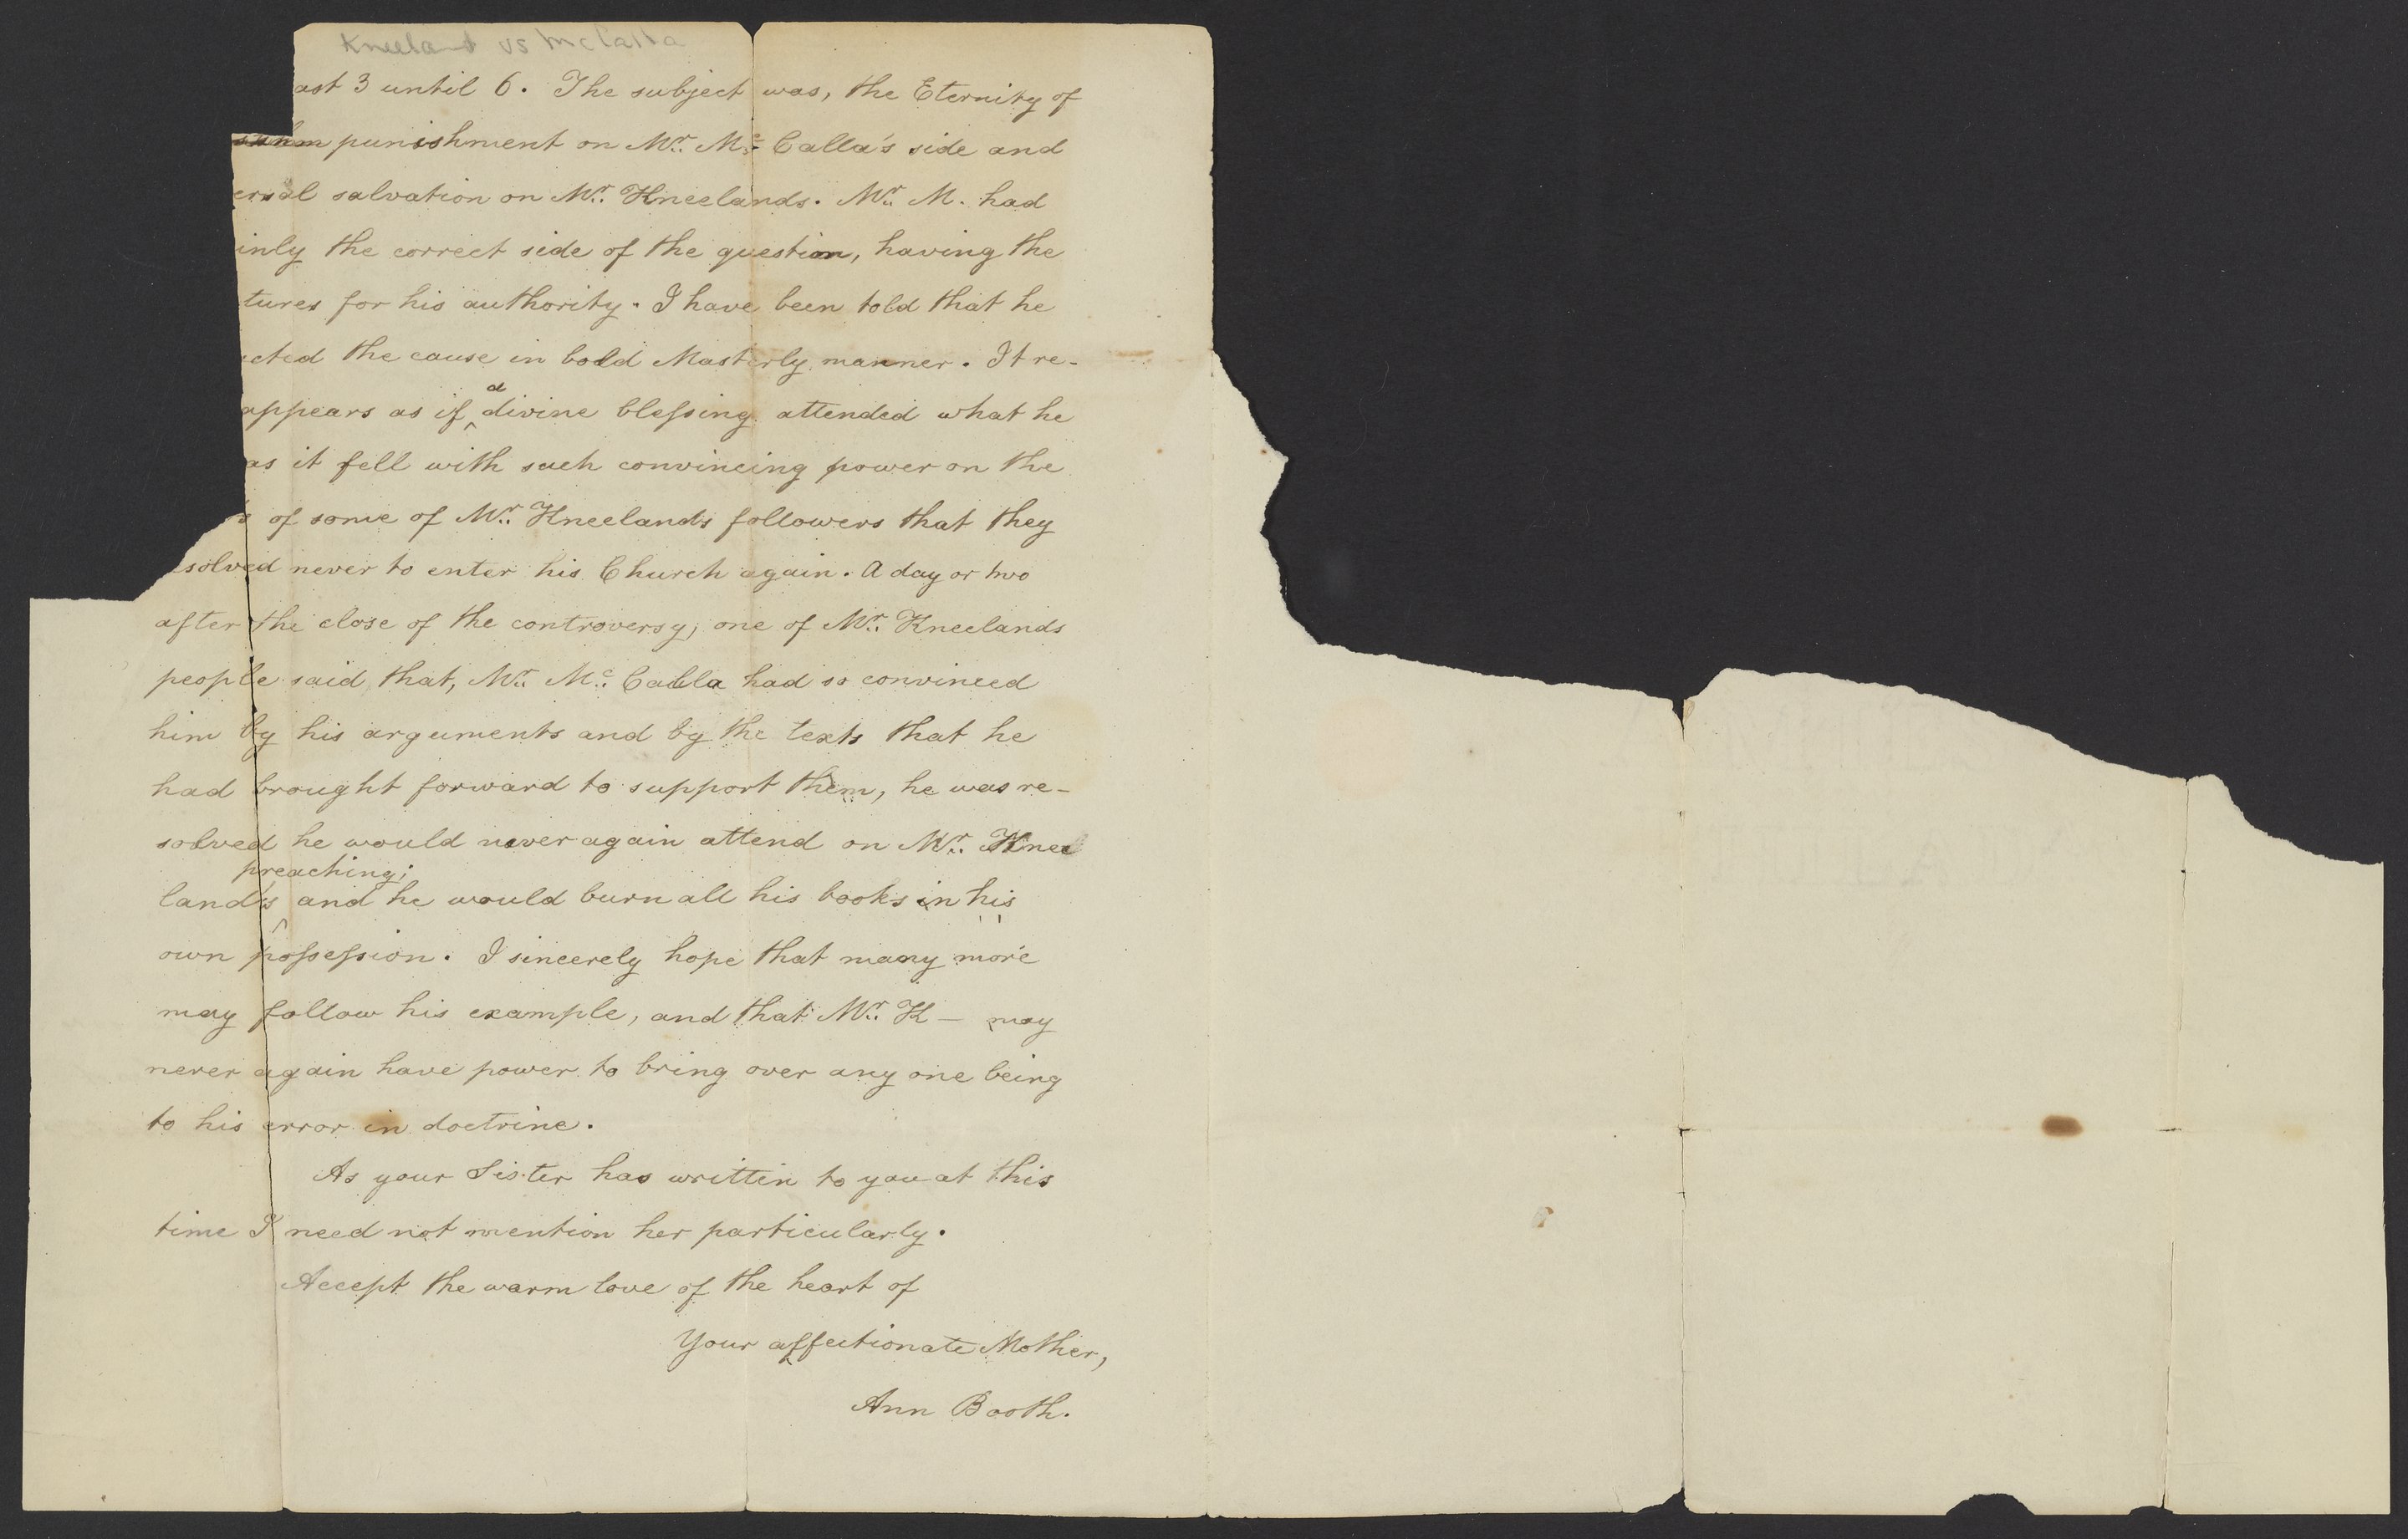 Kneeland vs McCalla
ast 3 until 6. The subject was, the Eternity of
punishment on Mr. Mc. Calla's side and
ersal salvation on Mr. Kneelands. Mr. M. had
inly the correct side of the question, having the
tures for his authority. I have been told that he
cted the cause in bold Masterly manner. It re-
appears as if a divine blessing attended what he
as it fell with such convincing power on the
s of some of Mr. Kneeland's followers that they
esolved never to enter his Church again. A day or two
after the close of the controversy, one of Mr. Kneelands
people said, that, Mr. Mc. Calla had so convinced
him by his arguments and by the texts that he
had brought forward to support them, he was re-
solved he would never again attend on Mr. Knee
land's preaching; and he would burn all his books in his
own possession. I sincerely hope that many more
may follow his example, and that Mr. K— may
never again have power to bring over any one being
to his error in doctrine.
As your Sister has written to you at this
time I need not mention her particularly.
Accept the warm love of the heart of
Your affectionate Mother,
Ann Booth.